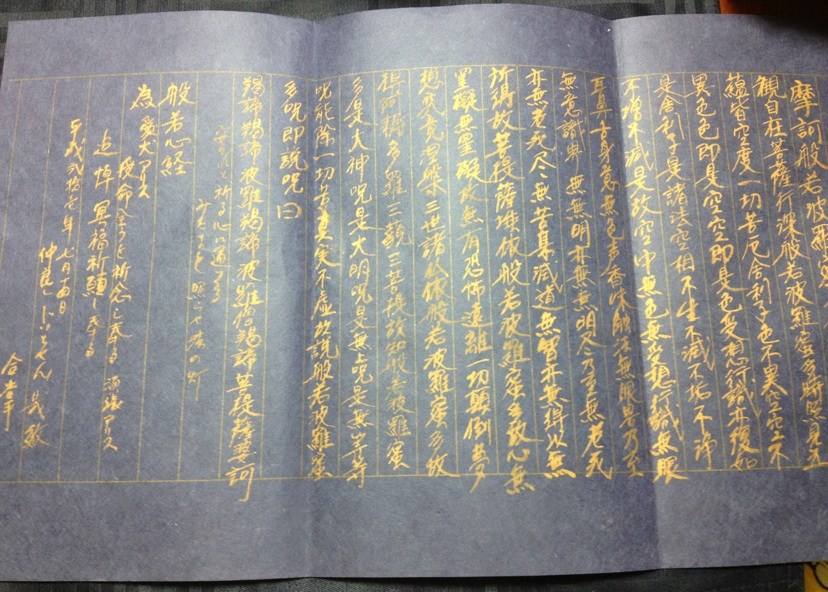 摩訶般若波羅蜜
観自在菩薩行深般若波羅蜜多時照見五
蘊皆空度一切苦厄舎利子色不異空空不
異色色即是空空即是色受想行識亦復如
是舎利子是諸法空相不生不滅不垢不浄
不増不減是故空中無色無受想行識無眼
耳鼻舌身意無色声香味触法無眼界乃至
無意識界無無明亦無無明尽乃至無老死
亦無老死尽無苦集滅道無智亦無得以無
所得故菩提薩埵依般若波羅蜜多故心無
罣礙無罣礙故無有恐怖遠離一切顛倒夢
想究竟涅槃三世諸仏依般若波羅蜜多故
得阿耨多羅三藐三菩提故知般若波羅蜜
多是大神呪是大明呪是無上呪是無等等
呪能除一切苦真実不虚故説般若波羅蜜
多呪即説呪曰
羯諦羯諦波羅羯諦波羅僧羯諦菩提薩婆訶
祈る心に通ずる
照らす法の灯
般若心経
為 愛犬アース
延命全うを祈念し奉る 頑張アース
追悼 冥福祈願し奉る
平成弐拾七年 七月十四日
仲良し 義敏
合掌